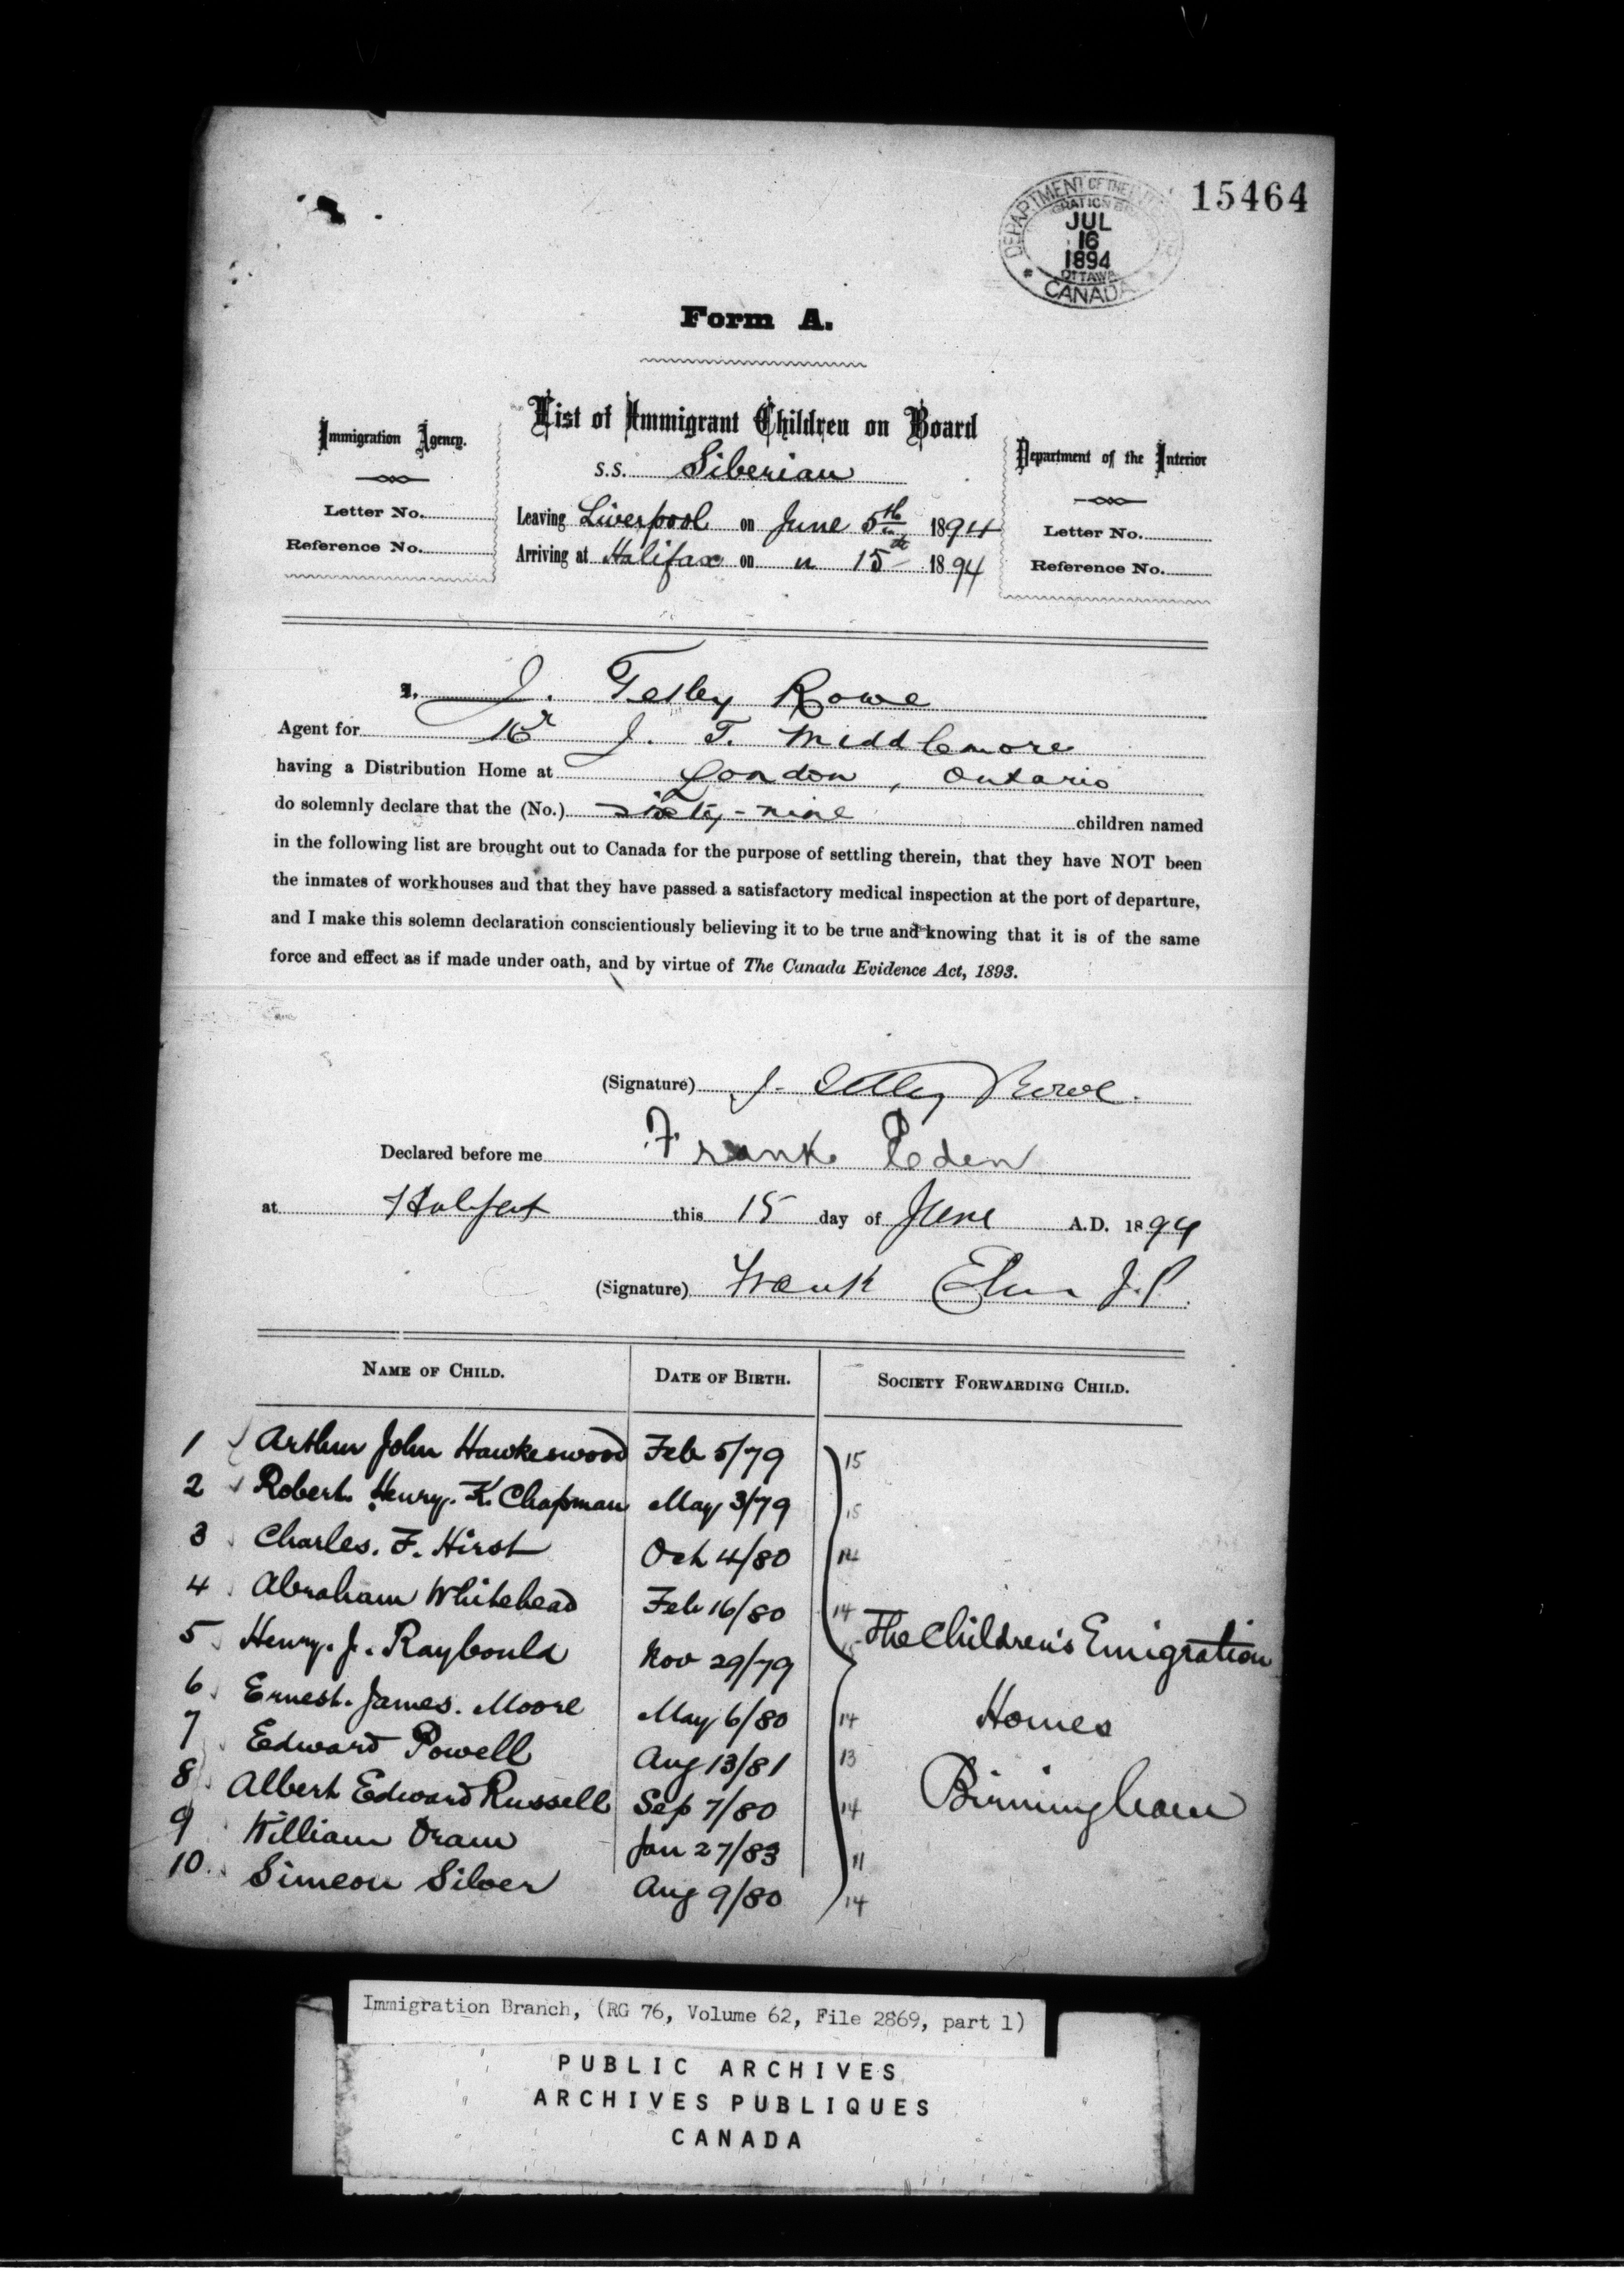 15464
DEPARTMENT OF THE INTERIOR
JUL
16
1894
OTTAWA
CANADA
Form A.
List of Immigrant Children on Board
Immigration Agency.
Department of the Interior
s.s. Siberian
Letter No.
Leaving Liverpool on June 5th 1894
Letter No.
Reference No.
Arriving at Halifax on " 15th 1894
Reference No.
I, J. Tetley Rowe
Agent for Mr J. T. Middlemore
having a Distribution Home at London, Ontario
do solemnly declare that the (No.) sixty-nine children named
in the following list are brought out to Canada for the purpose of settling therein, that they have NOT been
the inmates of workhouses and that they have passed a satisfactory medical inspection at the port of departure,
and I make this solemn declaration conscientiously believing it to be true and knowing that it is of the same
force and effect as if made under oath, and by virtue of The Canada Evidence Act, 1893.
(Signature) J. Tetley Rowe.
Declared before me Frank Eden
at Halifax this 15 day of June A.D. 1894
(Signature) Frank J.P.
NAME OF CHILD. DATE OF BIRTH. SOCIETY FORWARDING CHILD.
1 Arthur John Hawkeswood Feb 5/79 15
2 Robert Henry. K. Chapman May 3/79 15
3 Charles. F. Hirst Oct 4/80 14
4 Abraham Whitehead Feb 16/80 14
The Children's Emigration
5 Henry. J. Raybould Nov 29/79
6 Ernest. James. Moore May 6/80 14
Homes
7 Edward Powell Aug 13/81 13
8 Albert Edward Russell Sep 7/80 14
Birmingham
9 William Oram Jan 27/83 11
10 Simeon Silver Aug 9/80 14
Immigration Branch, (RG 76, Volume 62, File 2869, part 1)
PUBLIC ARCHIVES
ARCHIVES PUBLIQUES
CANADA